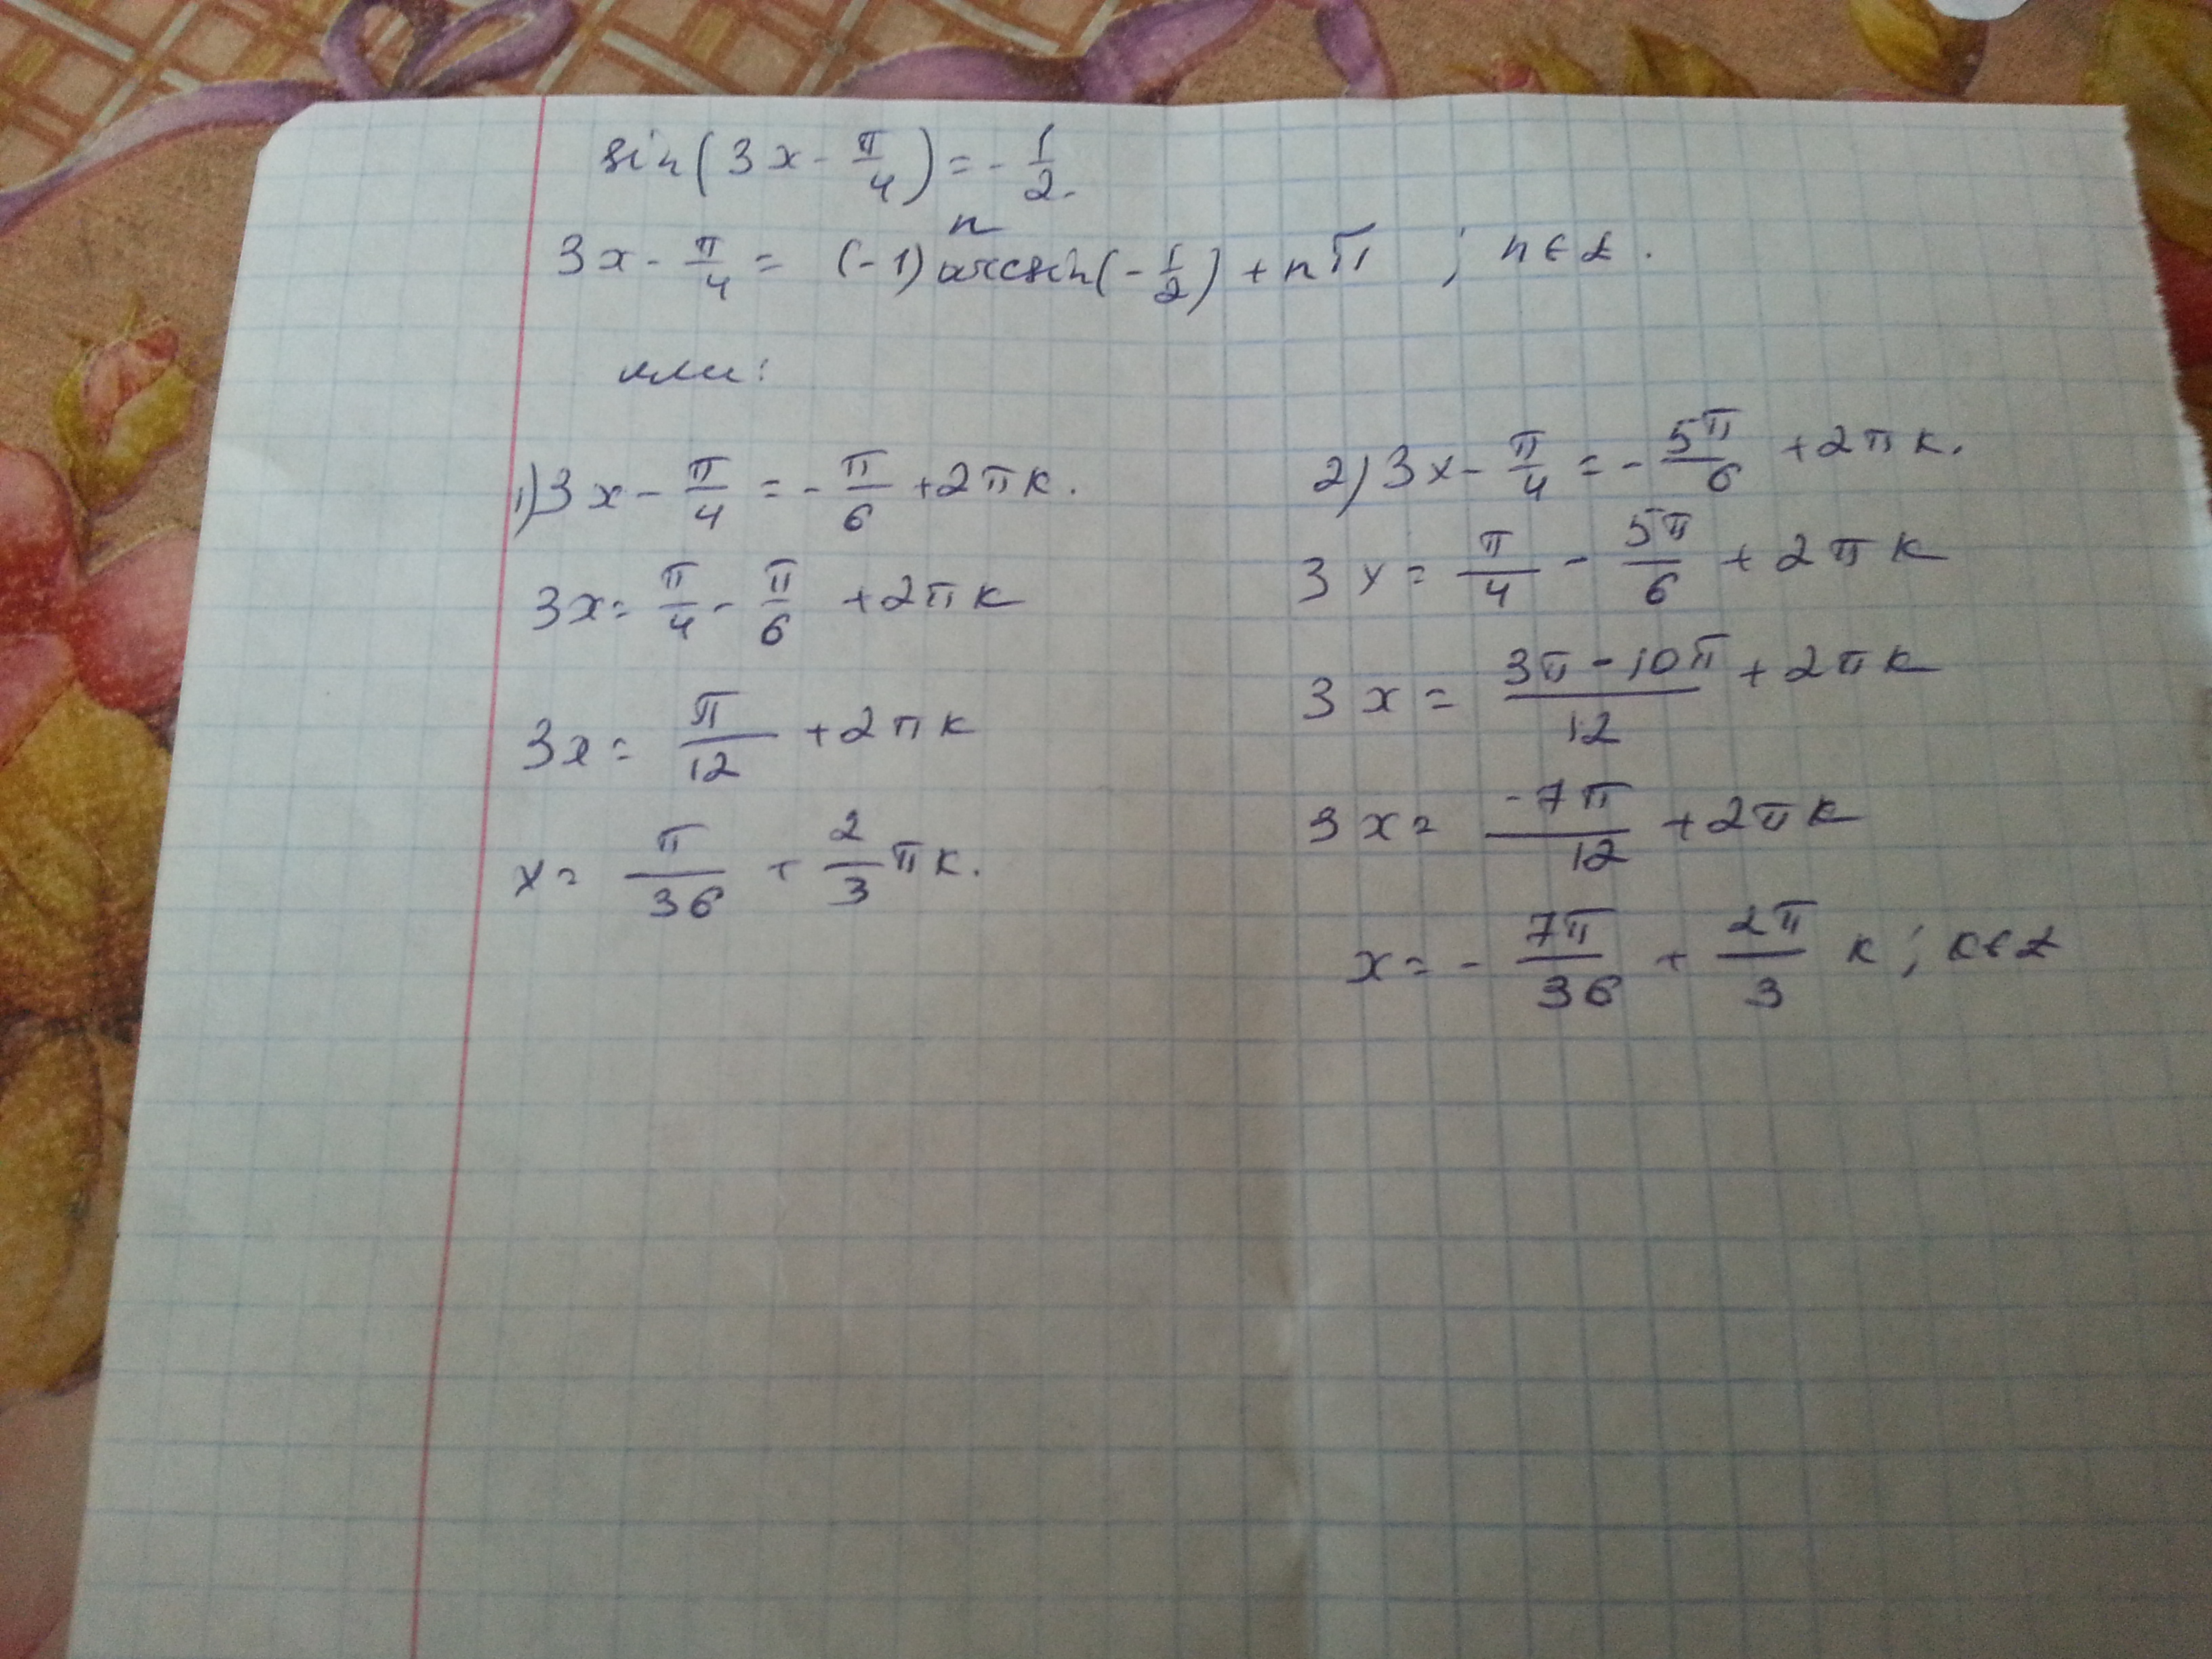 sin(3x - π/4) = - 1/2.
3x - π/4 = (-1)ⁿ arcsin(- 1/2) + nπ ; n ∈ Z.
или:
1) 3x - π/4 = - π/6 + 2πк.
3x = π/4 - π/6 + 2πк
3x = π/12 + 2πк
x = π/36 + 2/3 πк.
2) 3x - π/4 = - 5π/6 + 2πк.
3x = π/4 - 5π/6 + 2πк
3x = (3π - 10π)/12 + 2πк
3x = -7π/12 + 2πк
x = - 7π/36 + 2π/3 к ; к ∈ Z